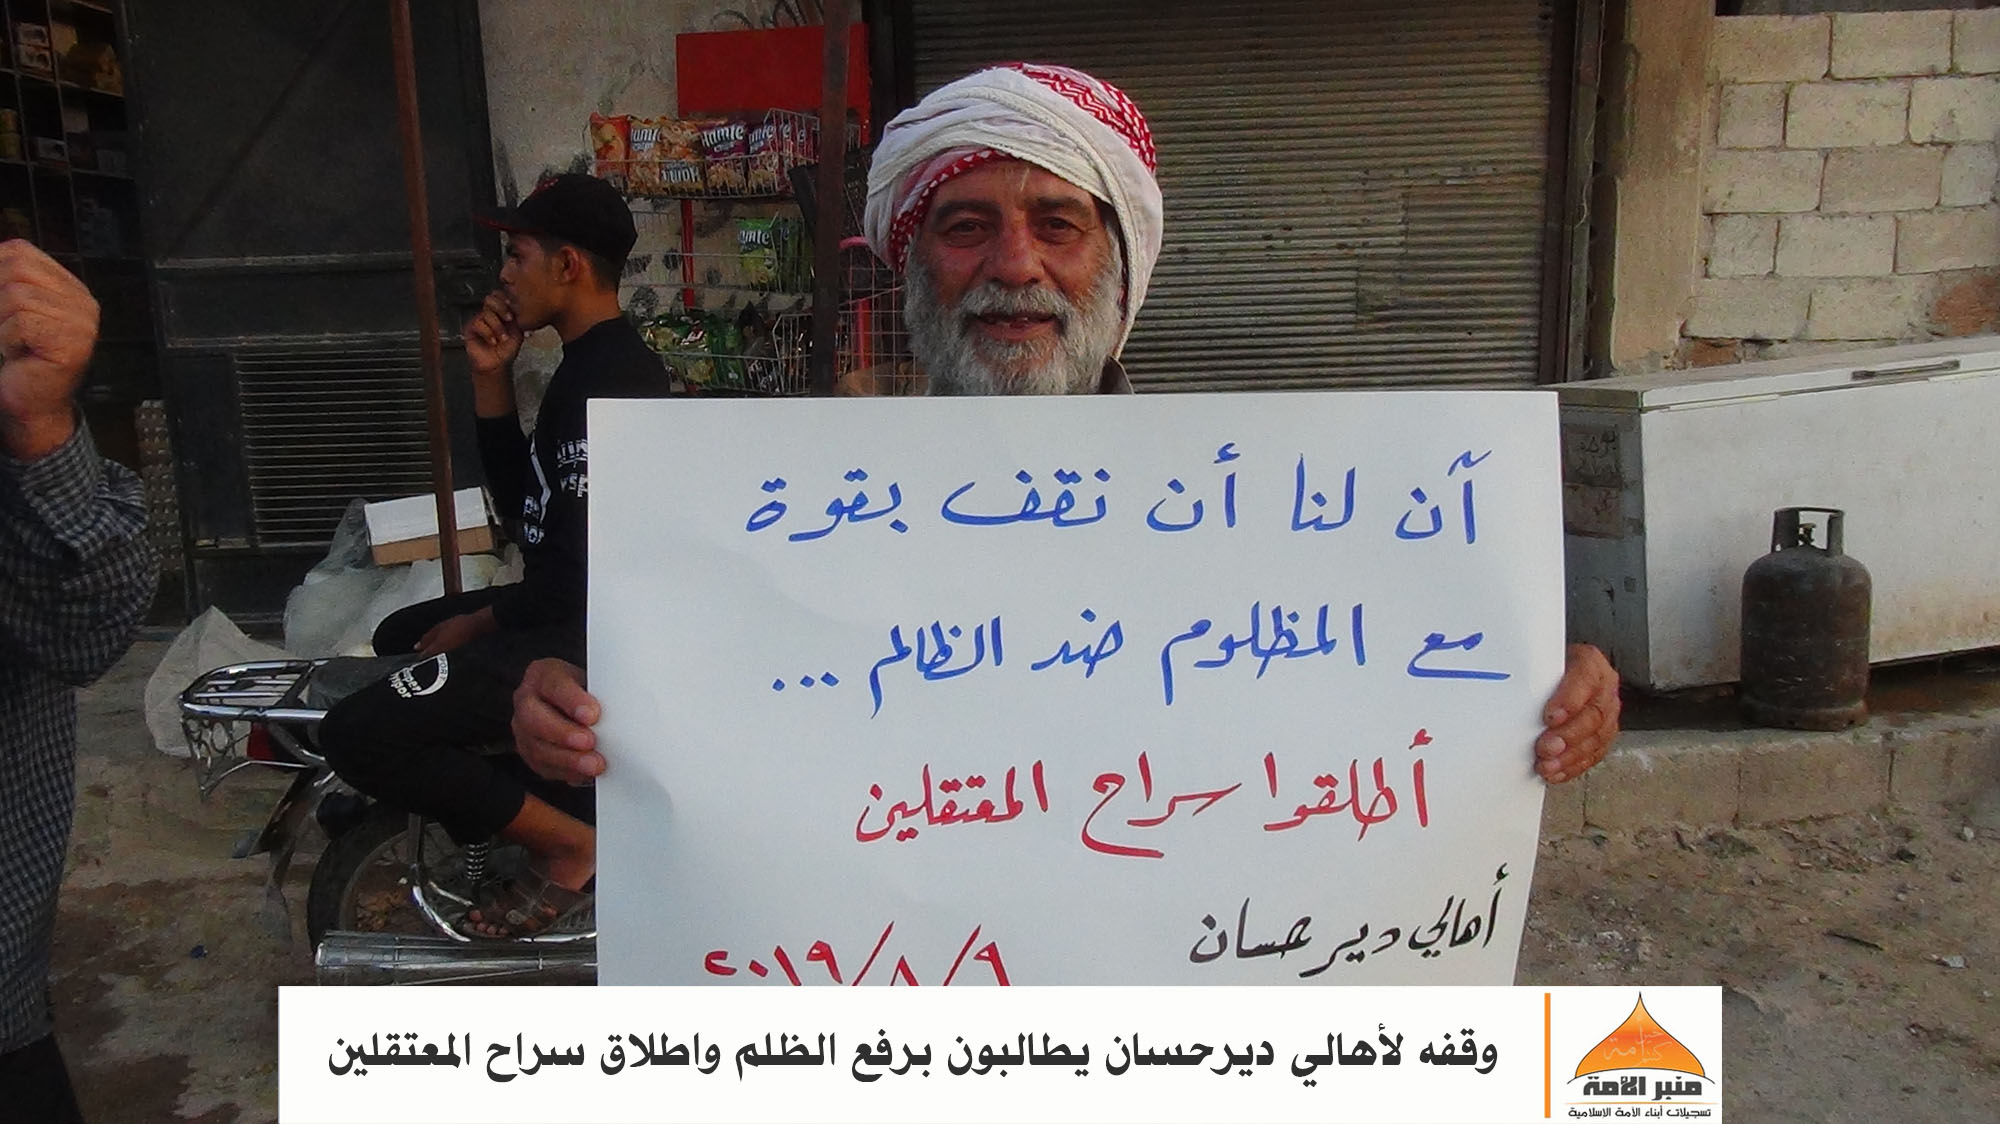 Hamte
آن لنا أن نقف بقوة
مع المظلوم ضد الظالم ...
أطلقوا سراح المعتقلين
أهالي دير حسان
٢٠١٩/٨/٩
وقفه لأهالي ديرحسان يطالبون برفع الظلم واطلاق سراح المعتقلين
منبر الأمة
تسجيلات أبناء الأمة الاسلامية